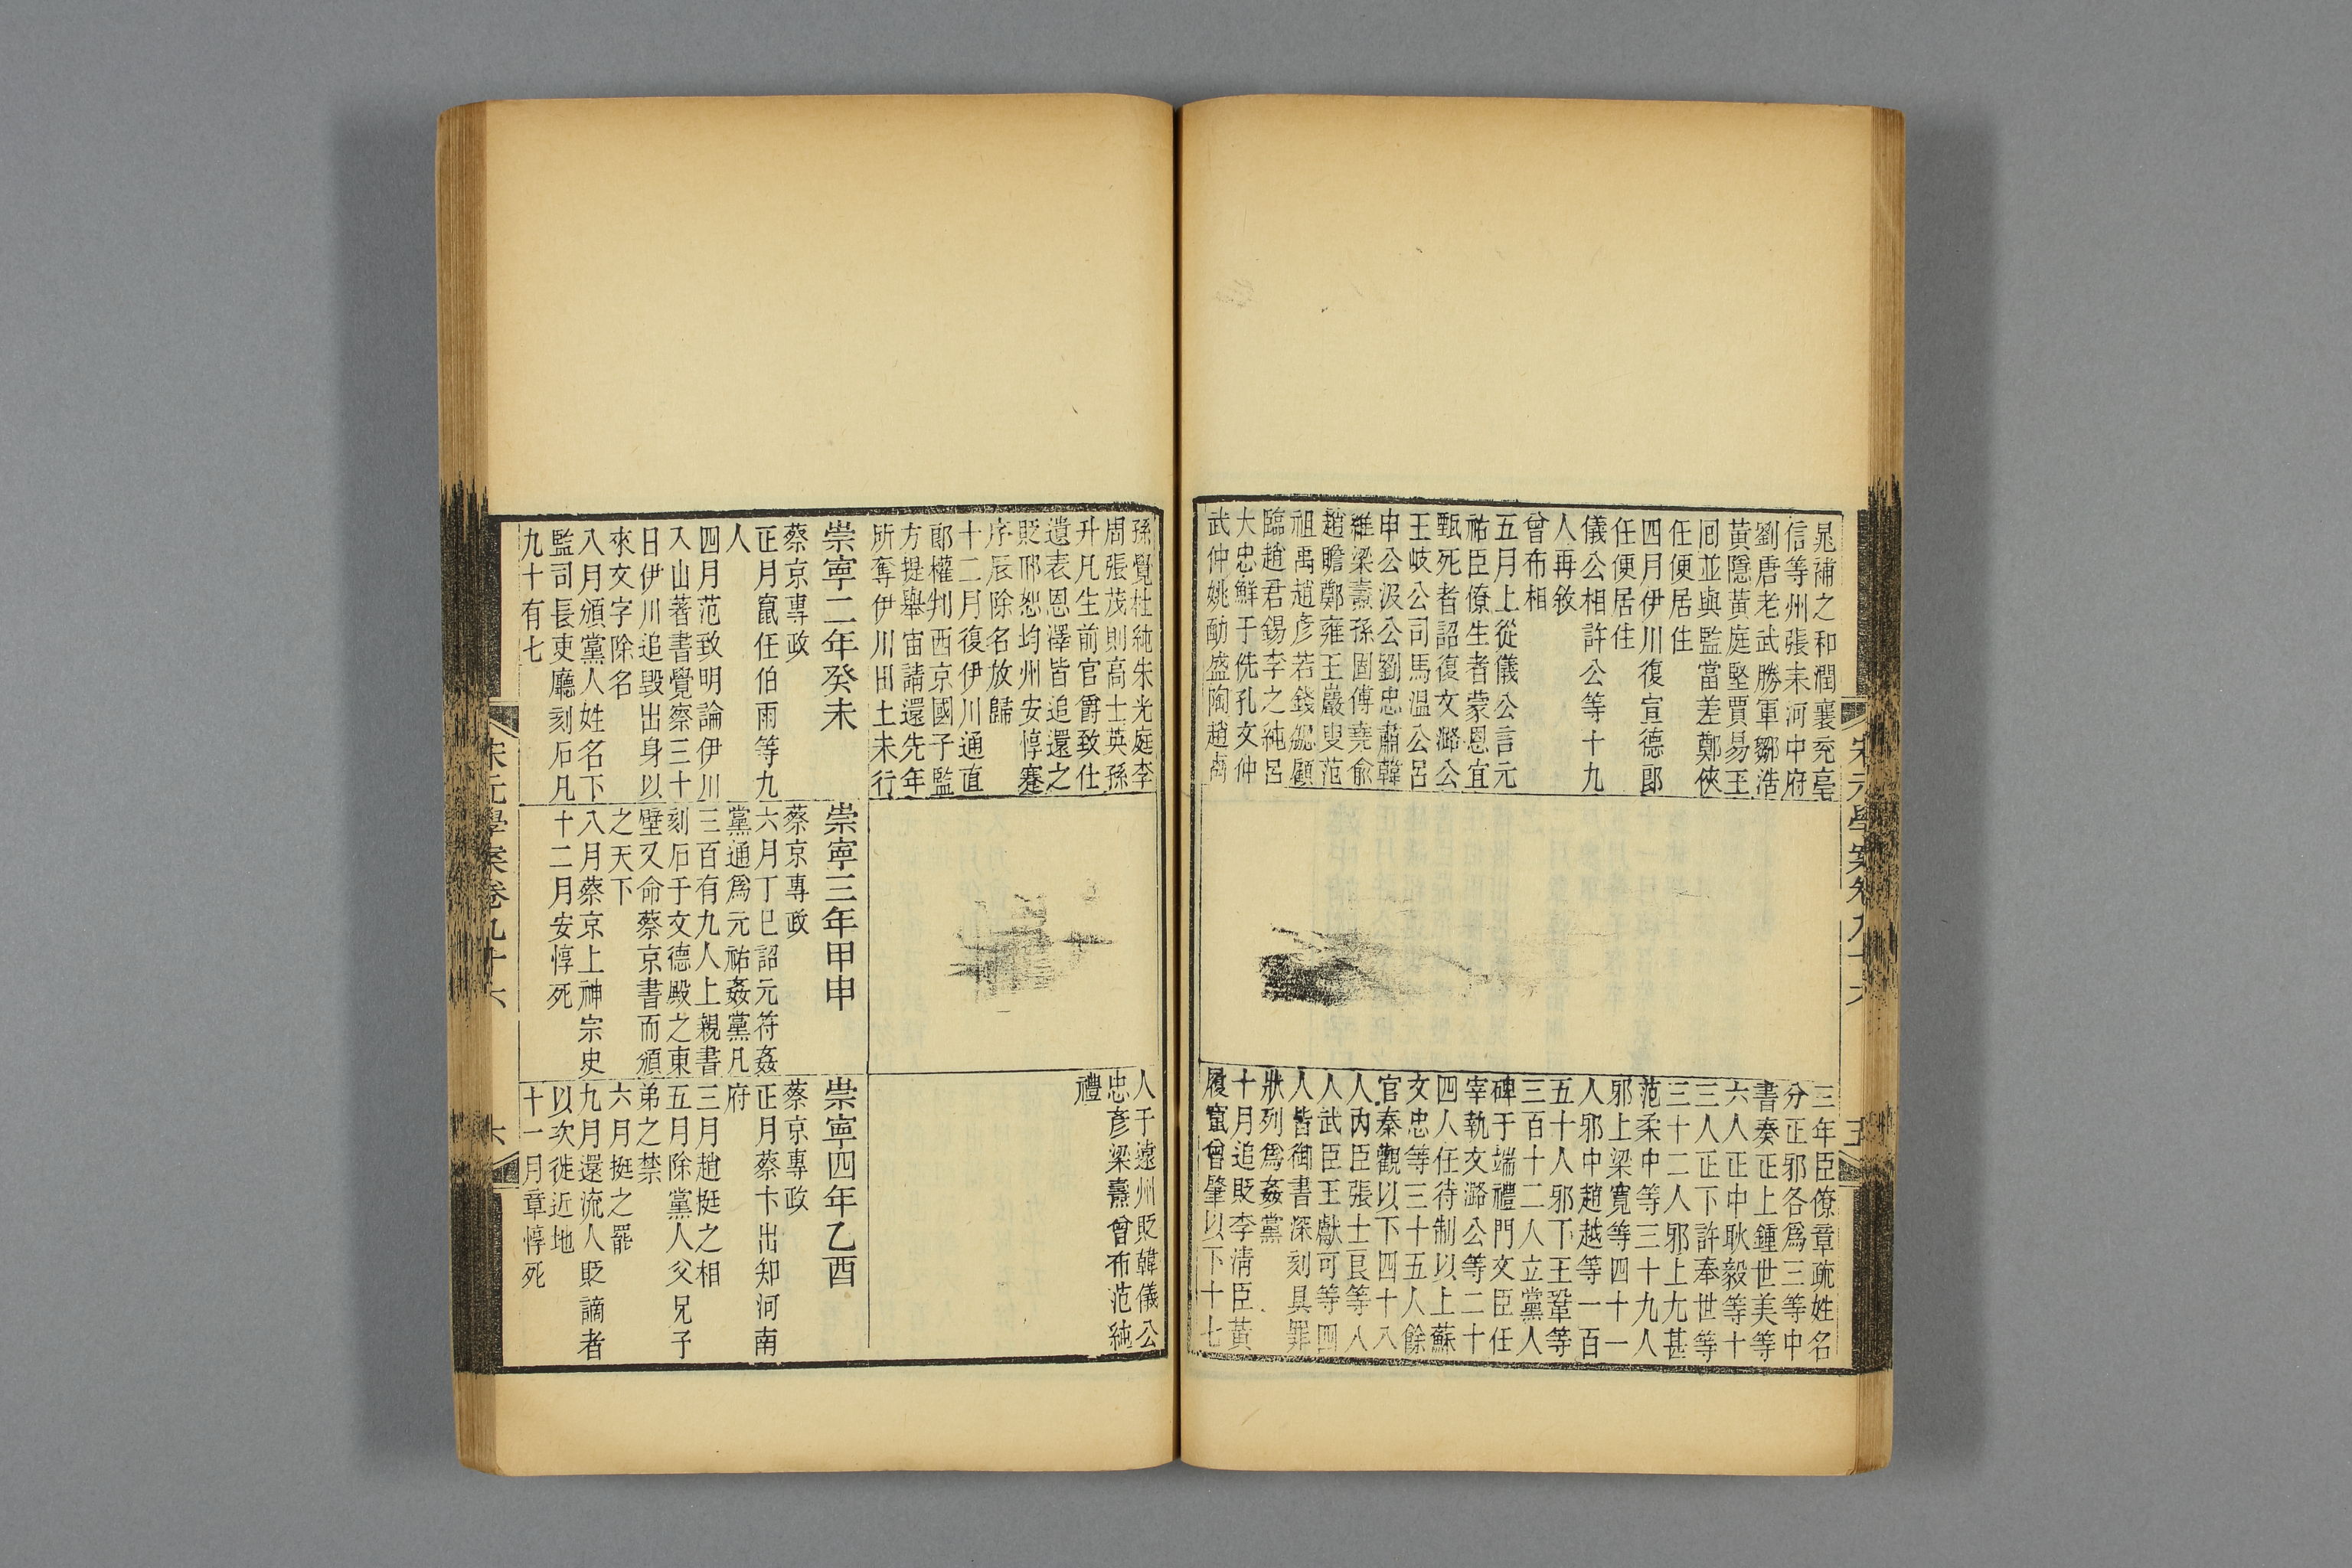 晁補之和潤襄兗亳
信等州張耒河中府
劉唐老武勝軍鄒浩
黃隱黃庭堅賈易王
回並與監當差鄭俠
任便居住
四月伊川復宣德郎
任便居住
儀公相許公等十九
人再敘
曾布相
五月上從儀公言元
祐臣僚生者蒙恩宜
甄死者詔復文潞公
王岐公司馬溫公呂
申公汲公劉忠肅韓
維梁燾孫固傅堯俞
趙瞻鄭雍王巖叟范
祖禹趙彥若錢勰顧
臨趙君錫李之純呂
大忠鮮于侁孔文仲
武仲姚勔盛陶趙卨
三年臣僚章疏姓名
分正邪各爲三等中
書奏正上鍾世美等
六人正中耿毅等十
三人正下許奉世等
三十二人邪上尤甚
范柔中等三十九人
邪上梁寬等四十一
人邪中趙越等一百
五十人邪下王鞏等
三百十二人立黨人
碑于端禮門文臣任
宰執文潞公等二十
四人任待制以上蘇
文忠等三十五人餘
官秦觀以下四十八
人內臣張士良等八
人武臣王獻可等四
人皆御書深刻具罪
狀列爲姦黨
十月追貶李清臣黃
履竄曾肇以下十七
宋元學案卷九十六
五
孫覺杜純朱光庭李
周張茂則高士英孫
升凡生前官爵致仕
遺表恩澤皆追還之
貶邢恕均州安惇蹇
序辰除名放歸
十二月復伊川通直
郎權判西京國子監
方提舉宙請還先年
所奪伊川田土未行
人于遠州貶韓儀公
忠彥梁燾曾布范純
禮
崇寧二年癸未
蔡京專政
正月竄任伯雨等九
人
四月范致明論伊川
入山著書覺察三十
日伊川追毀出身以
來文字除名
八月頒黨人姓名下
監司長吏廳刻石凡
九十有七
崇寧三年甲申
蔡京專政
六月丁巳詔元符姦
黨通爲元祐姦黨凡
三百有九人上親書
刻石于文德殿之東
壁又命蔡京書而頒
之天下
八月蔡京上神宗史
十二月安惇死
崇寧四年乙酉
蔡京專政
正月蔡卞出知河南
府
三月趙挺之相
五月除黨人父兄子
弟之禁
六月挺之罷
九月還流人貶謫者
以次徙近地
十一月章惇死
宋元學案卷九十六
六